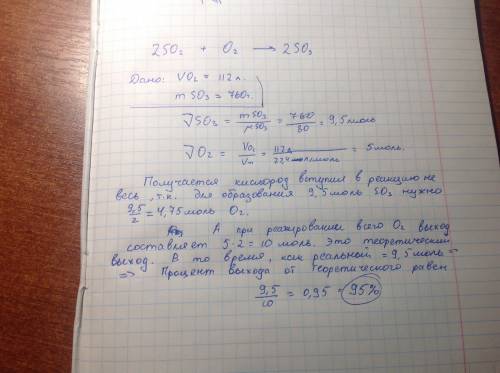 2SO₂ + O₂ → 2SO₃
Дано: VO₂ = 112 л.
mSO₃ = 760г.
√SO₃ = mSO₃/μSO₃ = 760/80 = 9,5 моль
√O₂ = Vo₂/Vм = 112л/22,4 л/моль = 5 моль.
Получается кислород вступил в реакцию не
весь, т.к. для образования 9,5 моль SO₃ нужно
9,5/2 = 4,75 моль O₂.
А при реагировании всего O₂ выход
составляет 5·2 = 10 моль. Это теоретический
выход. В то время, как реальный = 9,5 моль ⇒
⇒ Процент выхода от теоретического равен
9,5/10 = 0,95 = 95%